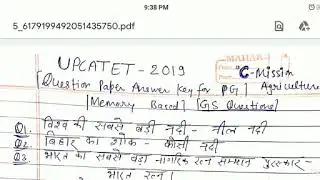 9:38 PM
5_6179199492051435750.pdf
MAHAK
UPCATET - 2019
"C-Mission
[Question Paper Answer Key for PG] Agriculture
[Memory Based] [GS Questions]
Q1. विश्व की सबसे बडी नदी - नील नदी
Q2. बिहार का शोक - कोसी नदी
Q3. भारत का सबसे बडा नागरिक रत्न सम्मान पुरस्कार -
भारत रत्न।